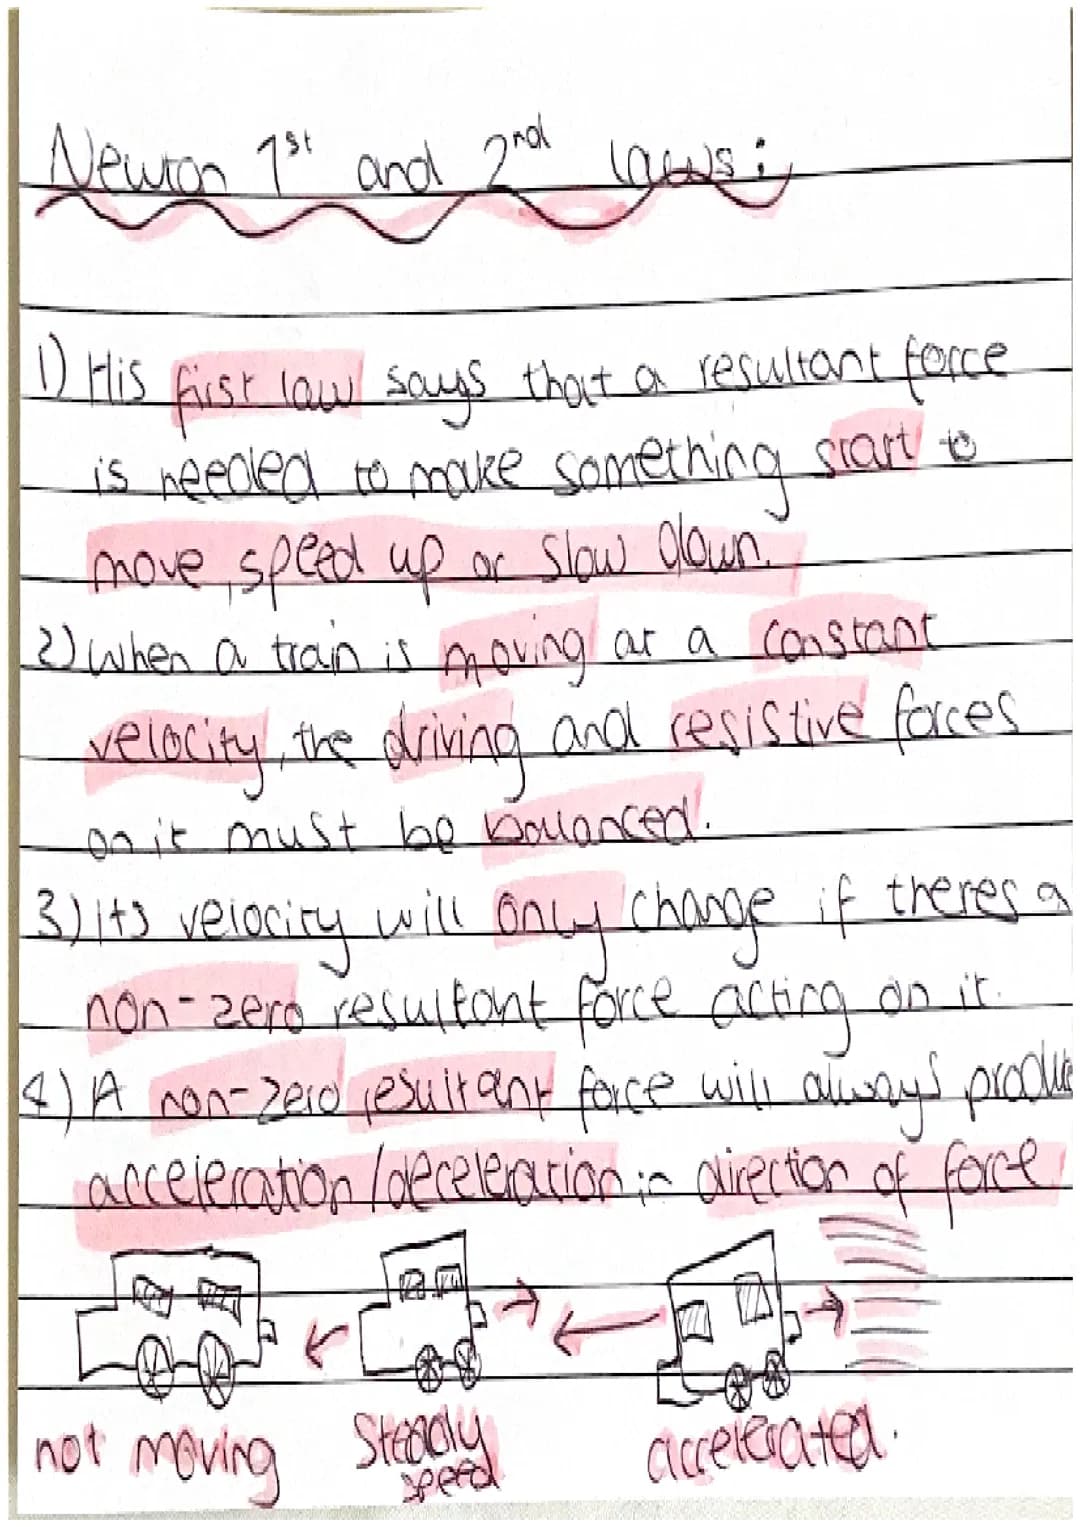 Newton 1st and 2nd laws:
1) His first law says that a resultant force
is needed to make something start to
move, speed up or slow down.
2) When a train is moving at a constant
velocity, the driving and resistive forces
on it must be balanced.
3) Its velocity will only change if theres a
non-zero resultant force acting on it.
4) A non-zero resultant force will always produce
acceleration/deceleration in direction of force
not moving
Steady
speed
accelerated.